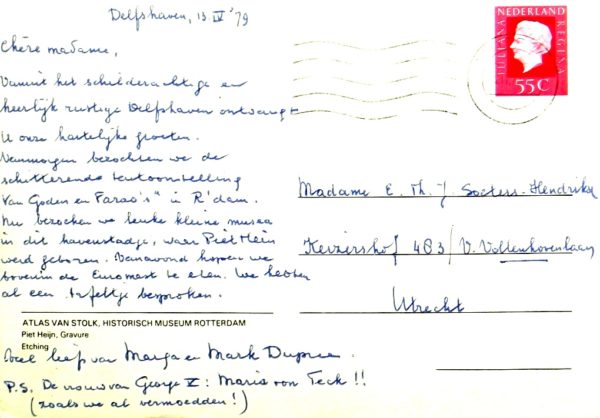 Delfshaven, 13 IV '79
Chère madame,
Vanuit het schilderachtige en
heerlijk rustige Delfshaven ontvangt
U onze hartelijke groeten.
Vanmorgen bezochten we de
schitterende tentoonstelling
"Van Goden en Farao's" in R'dam.
Nu bezoeken we leuke kleine musea
in dit havenstadje, waar Piet Hein
werd geboren. Vanavond hopen we
bovenin de Euromast te eten. We hebben
al een tafeltje besproken.
ATLAS VAN STOLK, HISTORISCH MUSEUM ROTTERDAM
Piet Heijn, Gravure
Etching
Veel liefs van Marga en Mark Dupree.
P.S. De vrouw van George V: Maria von Teck!!
(zoals we al vermoedden!)
JULIANA NEDERLAND REGINA
55C
Madame E. Th. J. Soeters-Hendrikx
Keizershof 403/V. Vollenhovenlaan
Utrecht